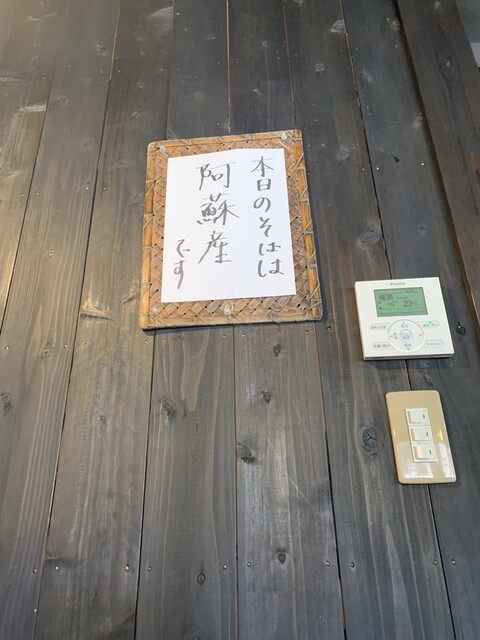 本日のそばは
阿蘇産
です
23℃